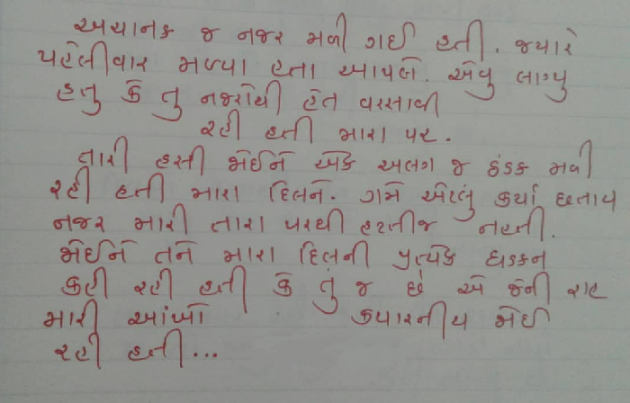 અચાનક જ નજર મળી ગઈ હતી. જ્યારે
પહેલીવાર મળ્યા હતા આપણે. એવુ લાગ્યુ
હતુ કે તુ નજરોથી હેત વરસાવી
રહી હતી મારા પર.
તારી હસી જોઈને એક અલગ જ ઠંડક મળી
રહી હતી મારા દિલને. ગમે એટલું કર્યા છતાય
નજર મારી તારા પરથી હટતીજ નહતી.
જોઈને તને મારા દિલની પ્રત્યેક ધડકન
કહી રહી હતી કે તું જ છે એ જેની રાહ
મારી આંખો ક્યારનીય જોઈ
રહી હતી...